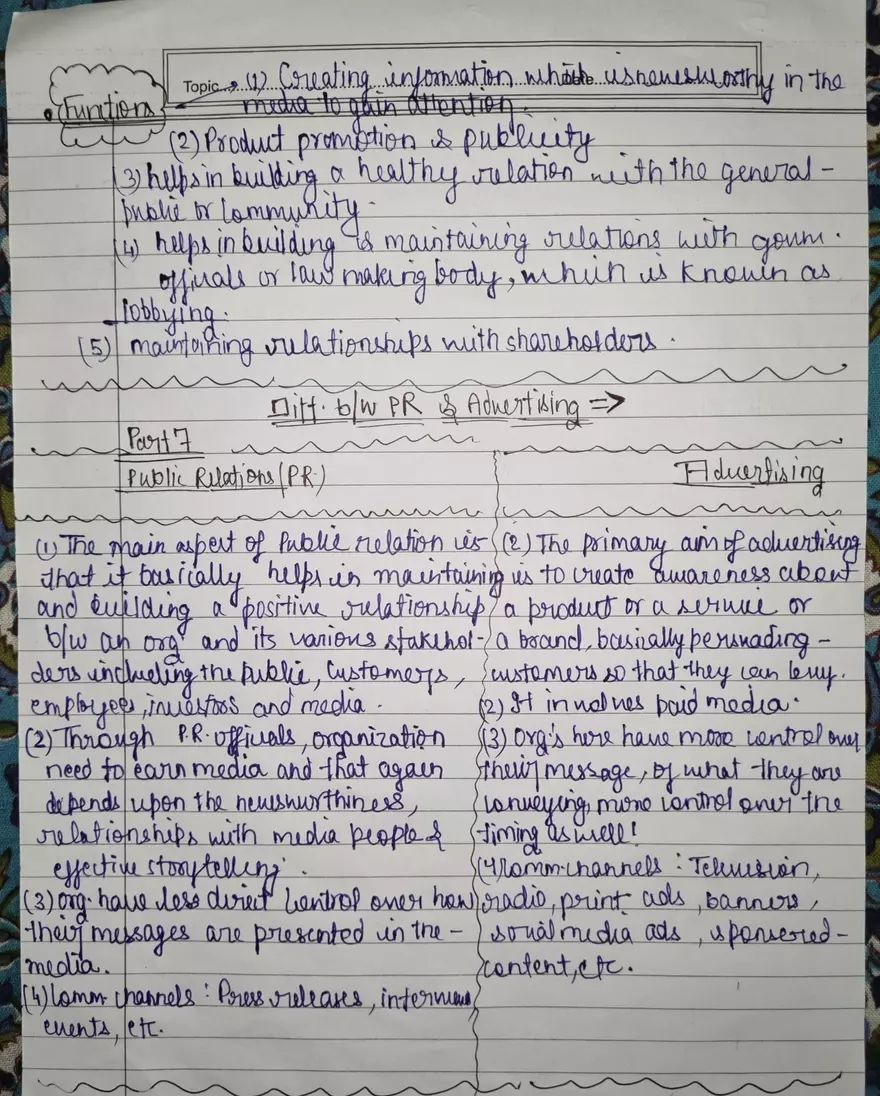 Topic → (1) Creating information which is newsworthy in the
• Functions
media to gain attention.
(2) Product promotion & publicity
(3) helps in building a healthy relation with the general -
public or community.
(4) helps in building & maintaining relations with govm.
officials or law making body, which is known as
lobbying.
(5) maintaining relationships with shareholders.
Diff. b/w PR & Advertising =>
Part 7
Public Relations (PR.)
(1) The main aspect of Public relation is
that it basically helps in maintaining
and building a positive relationship
b/w an orgn and its various stakehol-
ders including the public, customers,
employees, investors and media.
(2) Through P.R. officials, organization
need to earn media and that again
depends upon the newsworthiness,
relationships with media people &
effective storytelling.
(3) org. have less direct control over how
their messages are presented in the -
media.
(4) Comm. channels : Press releases, interviews,
events, etc.
Advertising
(2) The primary aim of advertising
is to create awareness about
a product or a service or
a brand, basically persuading -
customers so that they can buy.
(2) It involves paid media.
(3) Org's here have more control over
their message, of what they are
conveying, more control over the
timing as well!
(4) Comm. channels : Television,
radio, print ads, banners,
social media ads, sponsered -
content, etc.